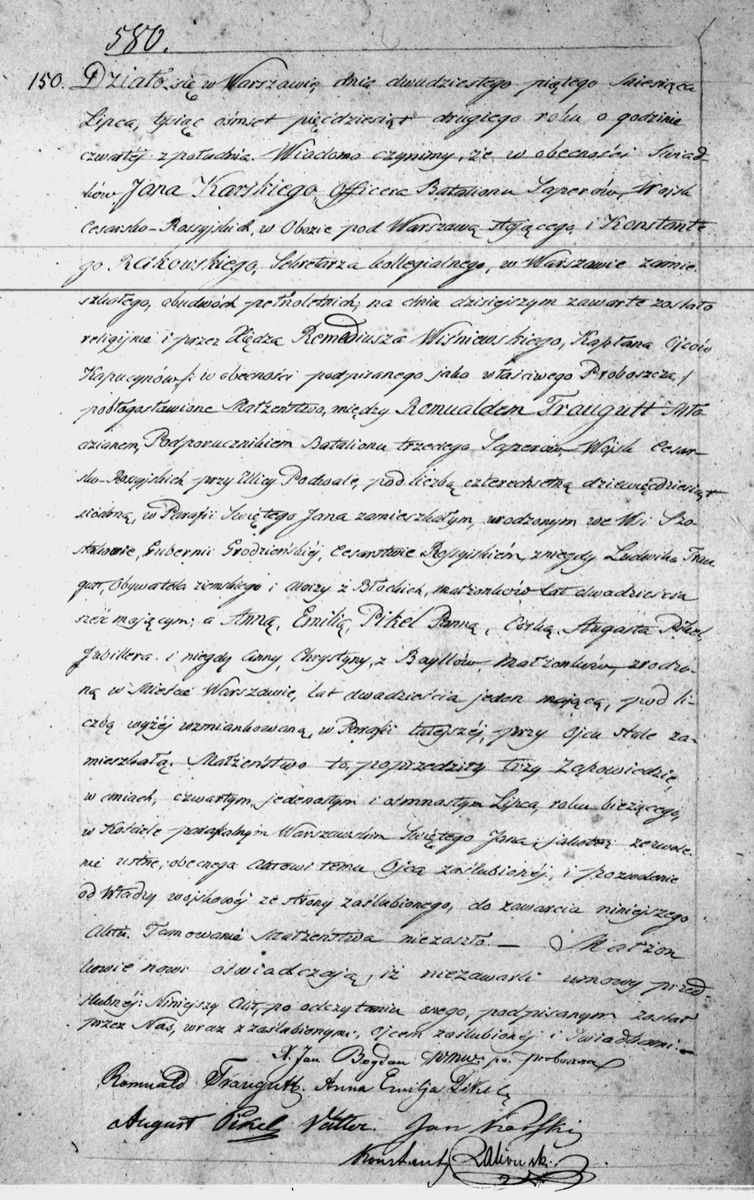 580.
150. Działo się w Warszawie dnia dwudziestego piątego Miesiąca
Lipca, tysiąc ośmset pięćdziesiąt drugiego roku o godzinie
czwartéj z południa. Wiadomo czynimy, że w obecności Świad-
ków Jana Karskiego, Officera Batalionu Saperów, Wojsk
Cesarsko-Rossyjskich, w Obozie pod Warszawą stojącego, i Konstante-
go Rakowskiego, Sekretarza kollegialnego, w Warszawie zamie-
szkałego, obudwóch pełnoletnich; na dniu dzisiejszym zawarte zostało
religijnie i przez Xiędza Remediusza Wiśniewskiego, Kapłana Ojców
Kapucynów /: w obecności podpisanego jako właściwego Proboszcza, /
pobłogosławione Małżeństwo, między Romualdem Traugutt Mło-
dzianem, Podporucznikiem Batalionu trzeciego Saperów Wojsk Cesar-
sko-Rossyjskich przy Ulicy Podwale, pod liczbą czterechsetną dziewięćdziesiąt
siódmą, w Parafii Świętego Jana zamieszkałym, urodzonym we Wsi Szo-
stakowie, Gubernii Grodzieńskiéj, Cesarstwie Rossyjskiém, z niegdy Ludwika Trau-
gutt, Obywatela ziemskiego i Aloizy z Błockich, małżonków lat dwadzieścia
sześć mającym; a Anną, Emilią, Pikel Panną, Córką Augusta Pikel
Jubillera i niegdy Anny, Chrystyny, z Bayllów, Małżonków, zrodzo-
ną w Mieście Warszawie, lat dwadzieścia jeden mającą, pod li-
czbą wyżéj wzmiankowaną, w Parafii tutejszéj, przy Ojcu stale za-
mieszkałą. Małżeństwo to, poprzedziły trzy Zapowiedzie,
w dniach, czwartym, jedenastym i ośmnastym Lipca, roku bieżącego,
w Kościele parafialnym Warszawskim Świętego Jana; jakoteż zezwole-
nie ustne, obecnego Aktowi temu Ojca zaślubionéj, i pozwolenie
od Władzy wojskowéj ze strony zaślubionego, do zawarcia niniejszego
Aktu. Tamowanie Małżeństwa niezaszło. — Małżon-
kowie nowi oświadczają, iż niezawarli umowy przed-
ślubnéj: Niniejszy Akt, po odczytaniu onego, podpisanym został
przez Nas, wraz z zaślubionymi, Ojcem zaślubionéj i Świadkami: —
X. Jan Bogdan po. proboszcza
Romuald Traugutt. Anna Emilja Pikel
August Pikel Vatter. Jan Karski
Konstanty Rakowski